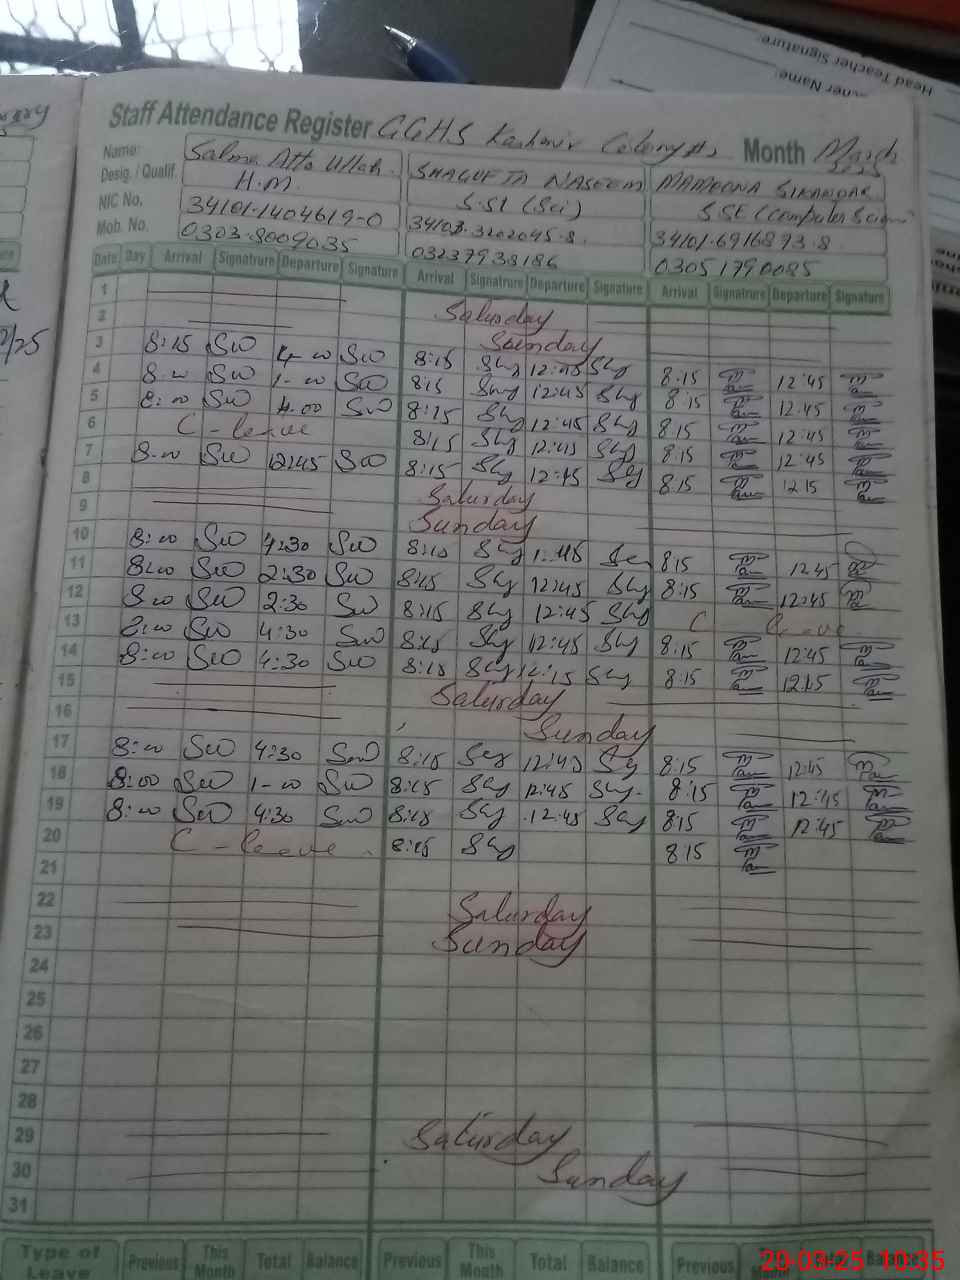 Staff Attendance Register GGHS Kashmir Colony Month March
2025
Name: Salma Atta Ullah SHAGUFTA NASEEM MAMOONA SIKANDAR
Desig. / Qualif. H.M. S.SE (Sci) SSE (Computer Science)
NIC No. 34101-1404619-0 34103-3202045-8 34101-6916893-8
Mob. No. 0303-8009035 03237938186 03051790085
Date Day Arrival Signatrure Departure Signature Arrival Signatrure Departure Signature Arrival Signatrure Departure Signature
1 Saturday
2 Sunday
3 8:15 4-00 8:15 12:45 8:15 12:45
4 8-00 1-00 8:15 12:45 8:15 12.45
5 8:00 4.00 8:15 12:45 8.15 12:45
6 C-leave 8:15 12:45 8:15 12:45
7 8-00 12:45 8:15 12:45 8.15 12.15
8 Saturday
9 Sunday
10 8:00 4:30 8:15 12:45 8:15 12.45
11 8:00 2:30 8:15 12:45 8:15 12:45
12 8:00 2:30 8:15 12:45 C leave
13 8:00 4:30 8:15 12:45 8:15 12:45
14 8:00 4:30 8:15 12:15 8:15 12:15
15 Saturday
16 Sunday
17 8:00 4:30 8:15 12:45 8:15 12:45
18 8:00 1-00 8:15 12:45 8:15 12:45
19 8:00 4:30 8:15 12:45 8:15 12:45
20 C-leave 8:15 8:15
21
22 Saturday
23 Sunday
24
25
26
27
28
29 Saturday
30 Sunday
31
Type of Leave Previous This Month Total Balance Previous This Month Total Balance Previous Balance
20-03-25 10:35
Head Teacher Signature: